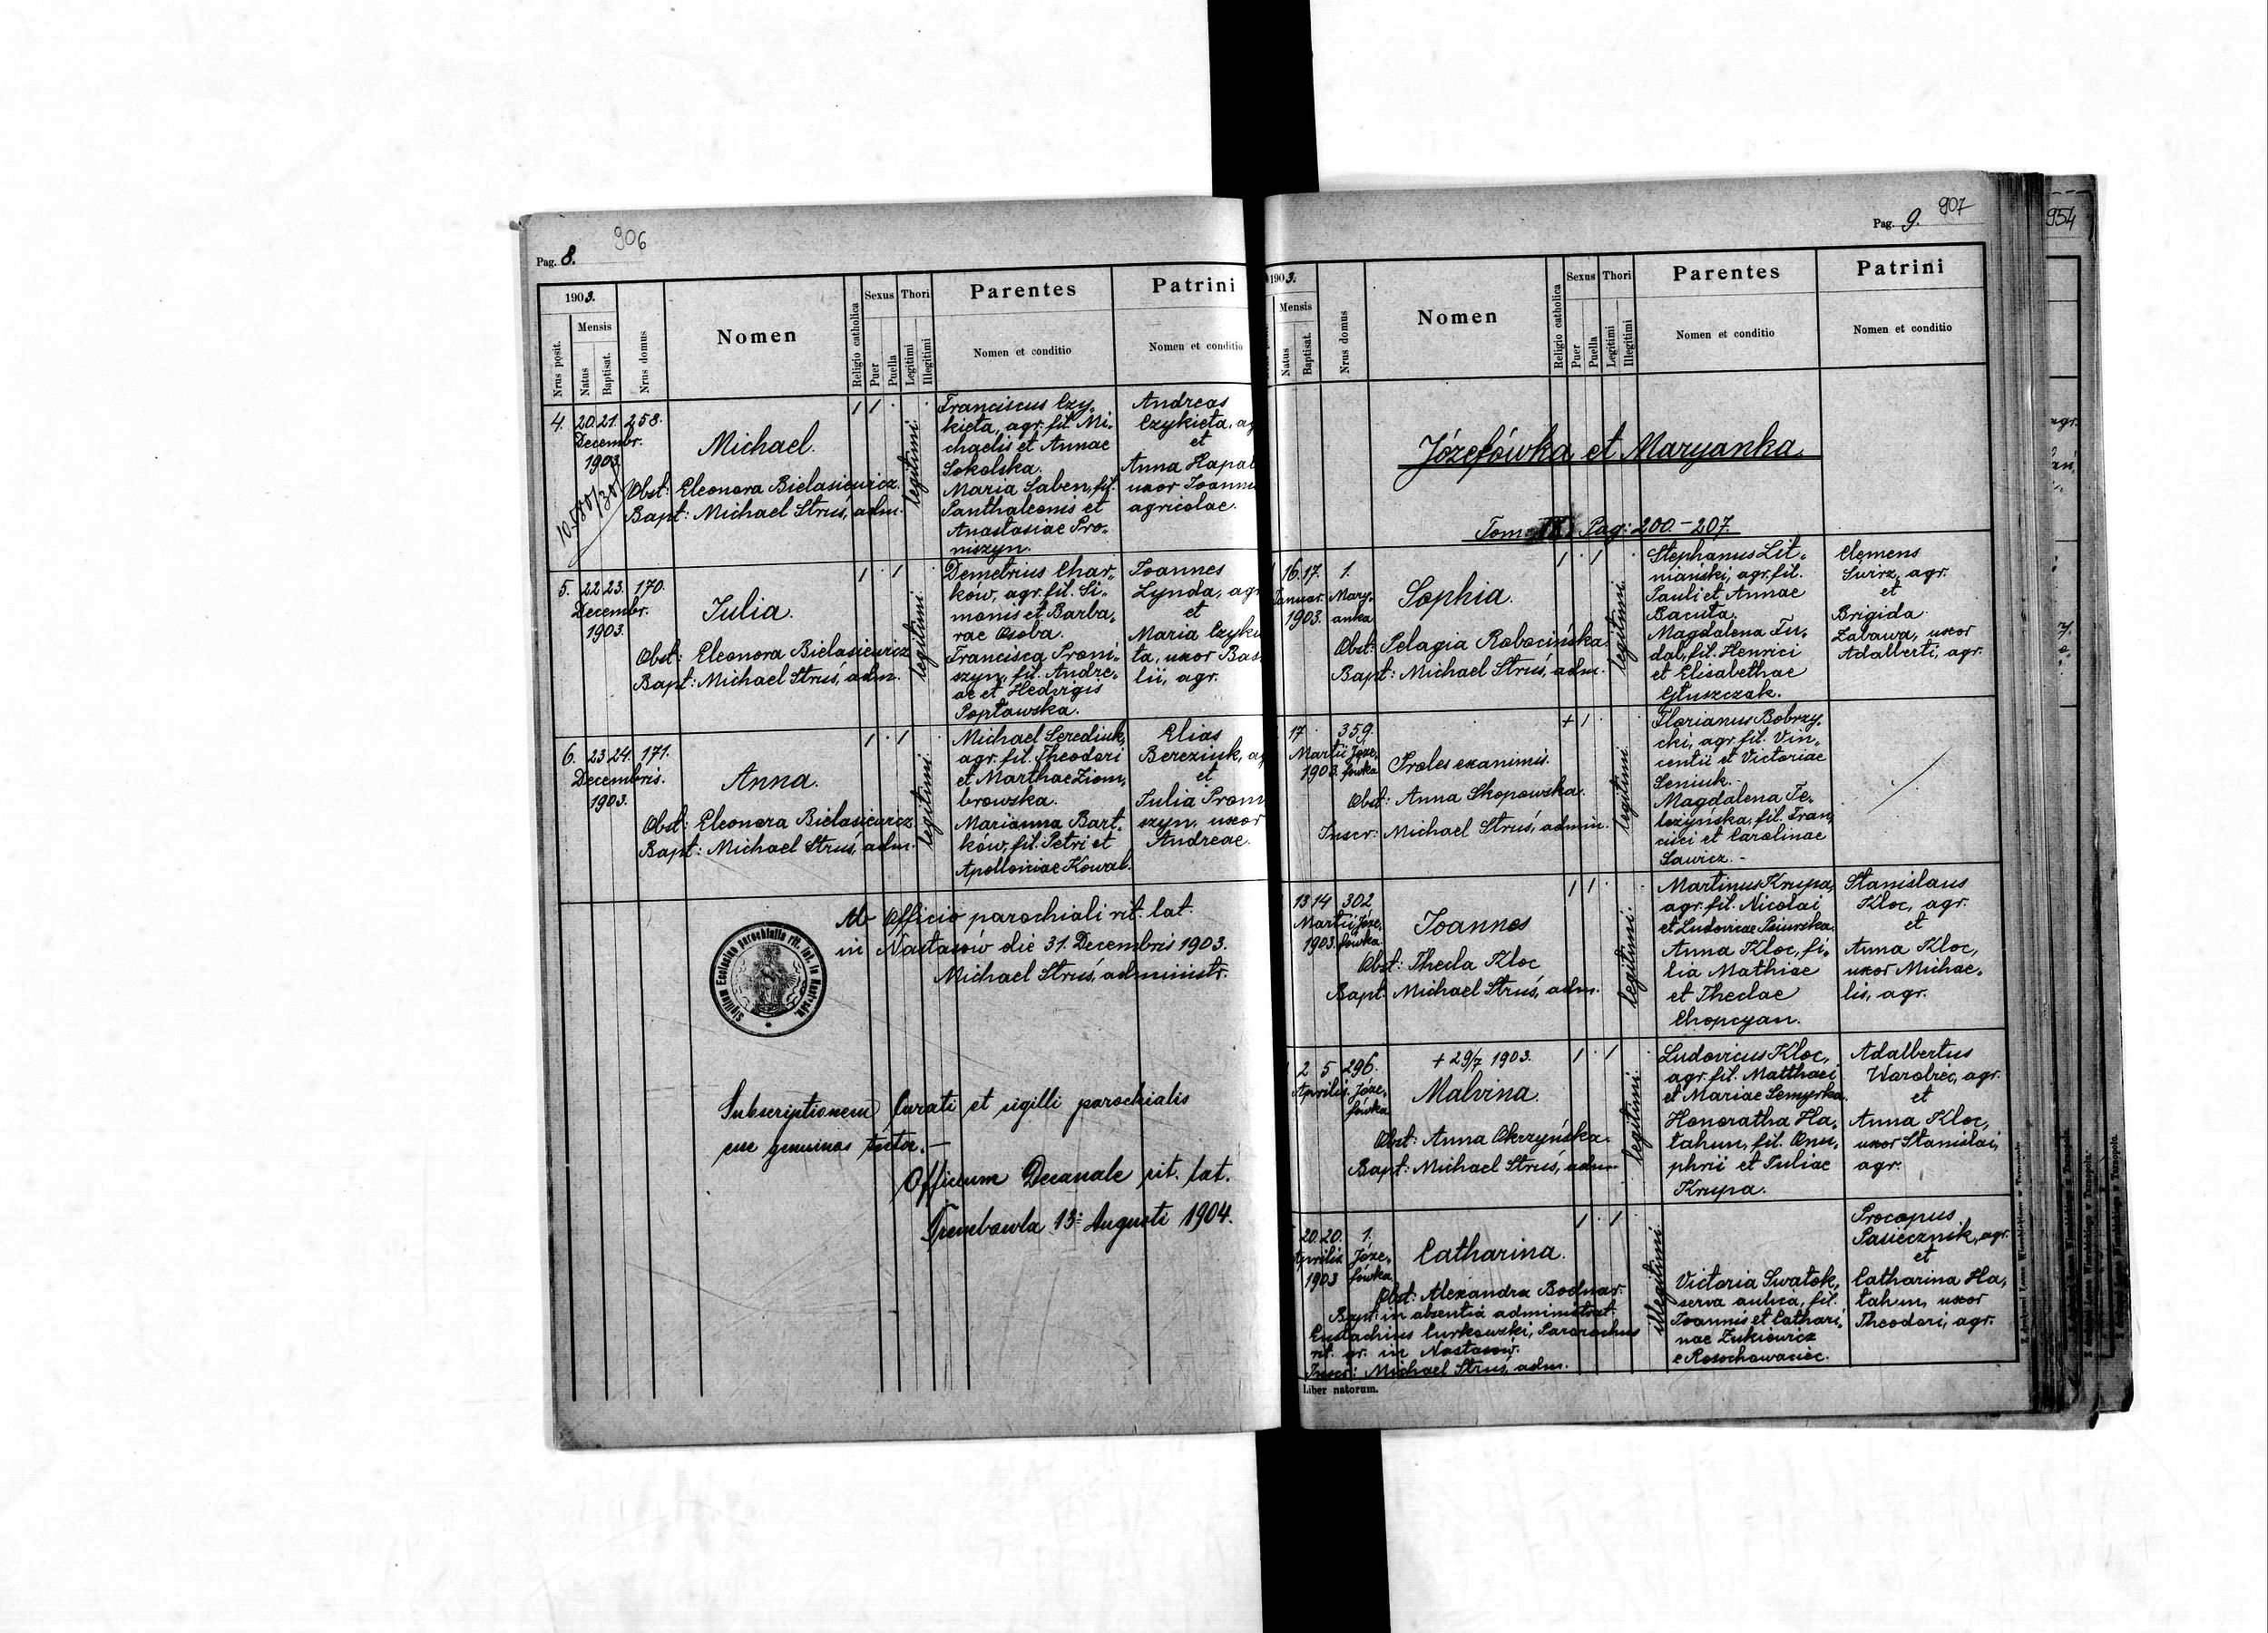 Pag. 8.
906
1903.
Nrus posit.
Mensis
Natus
Baptisat.
Nrus domus
Nomen
Religio catholica
Sexus
Puer
Puella
Thori
Legitimi
Illegitimi
Parentes
Nomen et conditio
Patrini
Nomen et conditio
4. 20. 21. 258.
Decembr.
1903.
Michael.
Obst: Eleonora Bielasiewicz.
Bapt: Michael Struś, adm.
legitimi
Franciscus Czy-
kieta, agr. fil. Mi-
chaelis et Annae
Sokolska.
Maria Saben, fil.
Panthaleonis et
Anastasiae Pro-
niszyn.
Andreas
Czykieta, ag
et
Anna Hapal
uxor Joanni
agricolae.
5. 22. 23. 170.
Decembr.
1903.
Julia.
Obst: Eleonora Bielasiewicz
Bapt: Michael Struś, adm.
legitimi
Demetrius Char-
ków, agr. fil. Si-
monis et Barba-
rae Osoba.
Francisca Proni-
szyn, fil. Andre-
ae et Hedvigis
Popławska.
Joannes
Lynda, agr
et
Maria Czykie
ta, uxor Bas
lii, agr.
6. 23. 24. 171.
Decembris.
1903.
Anna.
Obst: Eleonora Bielasiewicz
Bapt: Michael Struś, adm.
legitimi
Michael Serediuk,
agr. fil. Theodori
et Marthae Ziom-
browska.
Marianna Bart-
ków, fil. Petri et
Apolloniae Kowal.
Elias
Bereziuk, ag
et
Julia Proni
szyn, uxor
Andreae.
Ab Officio parochiali rit. lat.
in Nastasów die 31. Decembris 1903.
Michael Struś, administr.
Sigillum Ecclesiae parochialis rit. lat. in Nastasów.
Subscriptionem Curati et sigilli parochialis
esse genuinas testor.—
Officium Decanale rit. lat.
Trembowla 13. Augusti 1904.
Pag. 9.
907
1903.
Mensis
Natus
Baptisat.
Nrus domus
Nomen
Religio catholica
Sexus
Puer
Puella
Thori
Legitimi
Illegitimi
Parentes
Nomen et conditio
Patrini
Nomen et conditio
Józefówka et Maryanka.
Tom Pag: 200.-207.
16. 17. 1.
Januar. Mary-
1903. anka
Sophia.
Obst: Pelagia Robocińska.
Bapt: Michael Struś, adm.
legitimi
Stephanus Lit-
niański, agr. fil.
Pauli et Annae
Bacuta.
Magdalena Fu-
dal, fil. Henrici
et Elisabethae
Głuszczak.
Clemens
Swirz, agr.
et
Brigida
Zabawa, uxor
Adalberti, agr.
17 359.
Martii Józe-
1903. fówka
Proles exanimis.
Obst: Anna Skopowska.
Inscr: Michael Struś, admin.
legitimi
Florianus Bobrzy-
cki, agr. fil. Vin-
centii et Victoriae
Seniuk.-
Magdalena Te-
leżyńska, fil. Fran-
cisci et Carolinae
Sawicz.-
13 14 302
Martii Józe-
1903. fówka
Joannes
Obst: Thecla Kloc
Bapt: Michael Struś, adm.
legitimi
Martinus Krupa,
agr. fil. Nicolai
et Ludovicae
Anna Kloc, fi-
lia Mathiae
et Theclae
Chopcyan.
Stanislaus
Kloc, agr.
et
Anna Kloc,
uxor Michae-
lis, agr.
2 5 296.
Aprilis. Józe-
fówka
+ 29/7 1903.
Malvina.
Obst: Anna Okrzyńska.
Bapt: Michael Struś, adm.
legitimi
Ludovicus Kloc,
agr. fil. Matthaei
et Mariae Semyrka.
Honoratha Ha-
tahun, fil. Onu-
phrii et Juliae
Krupa.
Adalbertus
Warobiec, agr.
et
Anna Kloc,
uxor Stanislai,
agr.
20. 20. 1.
Aprilis Józe-
1903 fówka
Catharina.
Obst: Alexandra Bodnar.
Bapt: in absentia administrat.
Eustachius Curkowski, Parochus
rit. gr. in Nastasów.
Inscr: Michael Struś, adm.
illegitimi
Victoria Swatok,
serva aulica, fil.
Joannis et Cathari-
nae Zukiewicz
e Rosochowaciec.
Procopus
Pasiecznik, agr.
et
Catharina Ha-
tahun, uxor
Theodori, agr.
Liber natorum.
954